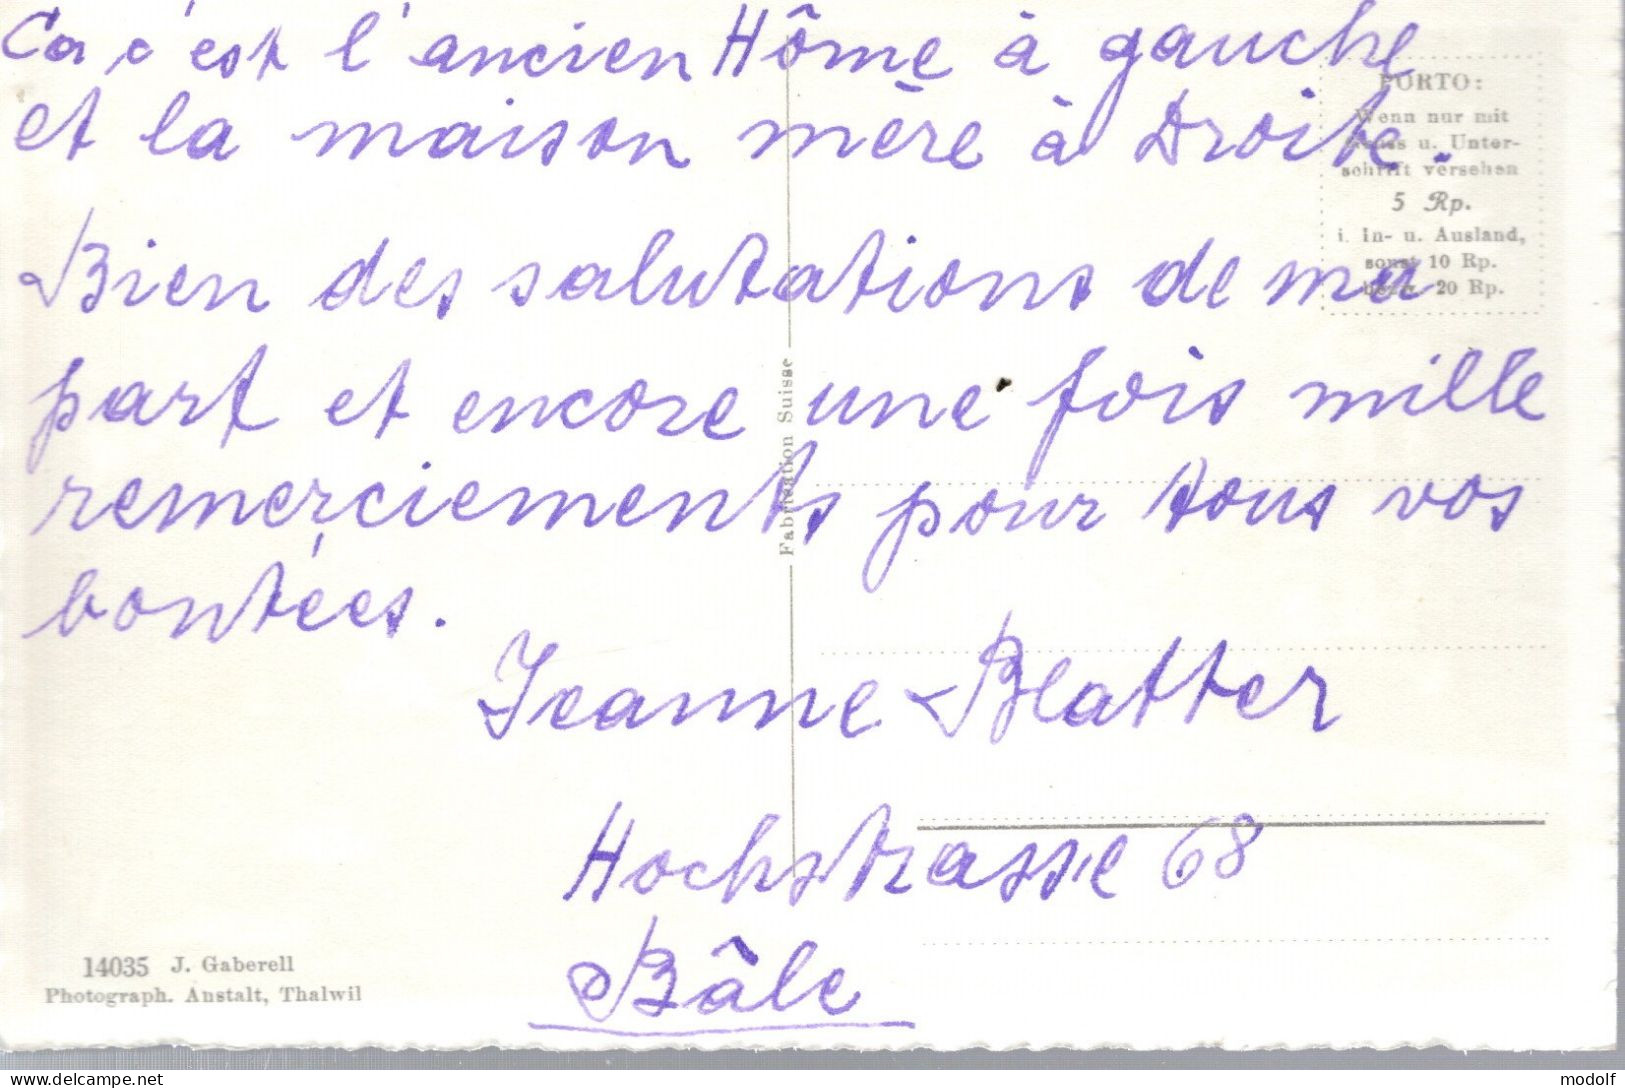 Ca c'est l'ancien Hôme à gauche
et la maison mère à Droite.
Bien des salutations de ma
part et encore une fois mille
remerciements pour tous vos
bontées.
Jeanne Blatter
Hochstrasse 68
Bâle
PORTO:
Wenn nur mit
Gruss u. Unter-
schrift versehen
5 Rp.
i. In- u. Ausland,
sonst 10 Rp.
bezw. 20 Rp.
Fabrication Suisse
14035 J. Gaberell
Photograph. Anstalt, Thalwil
delcampe.net
modolf